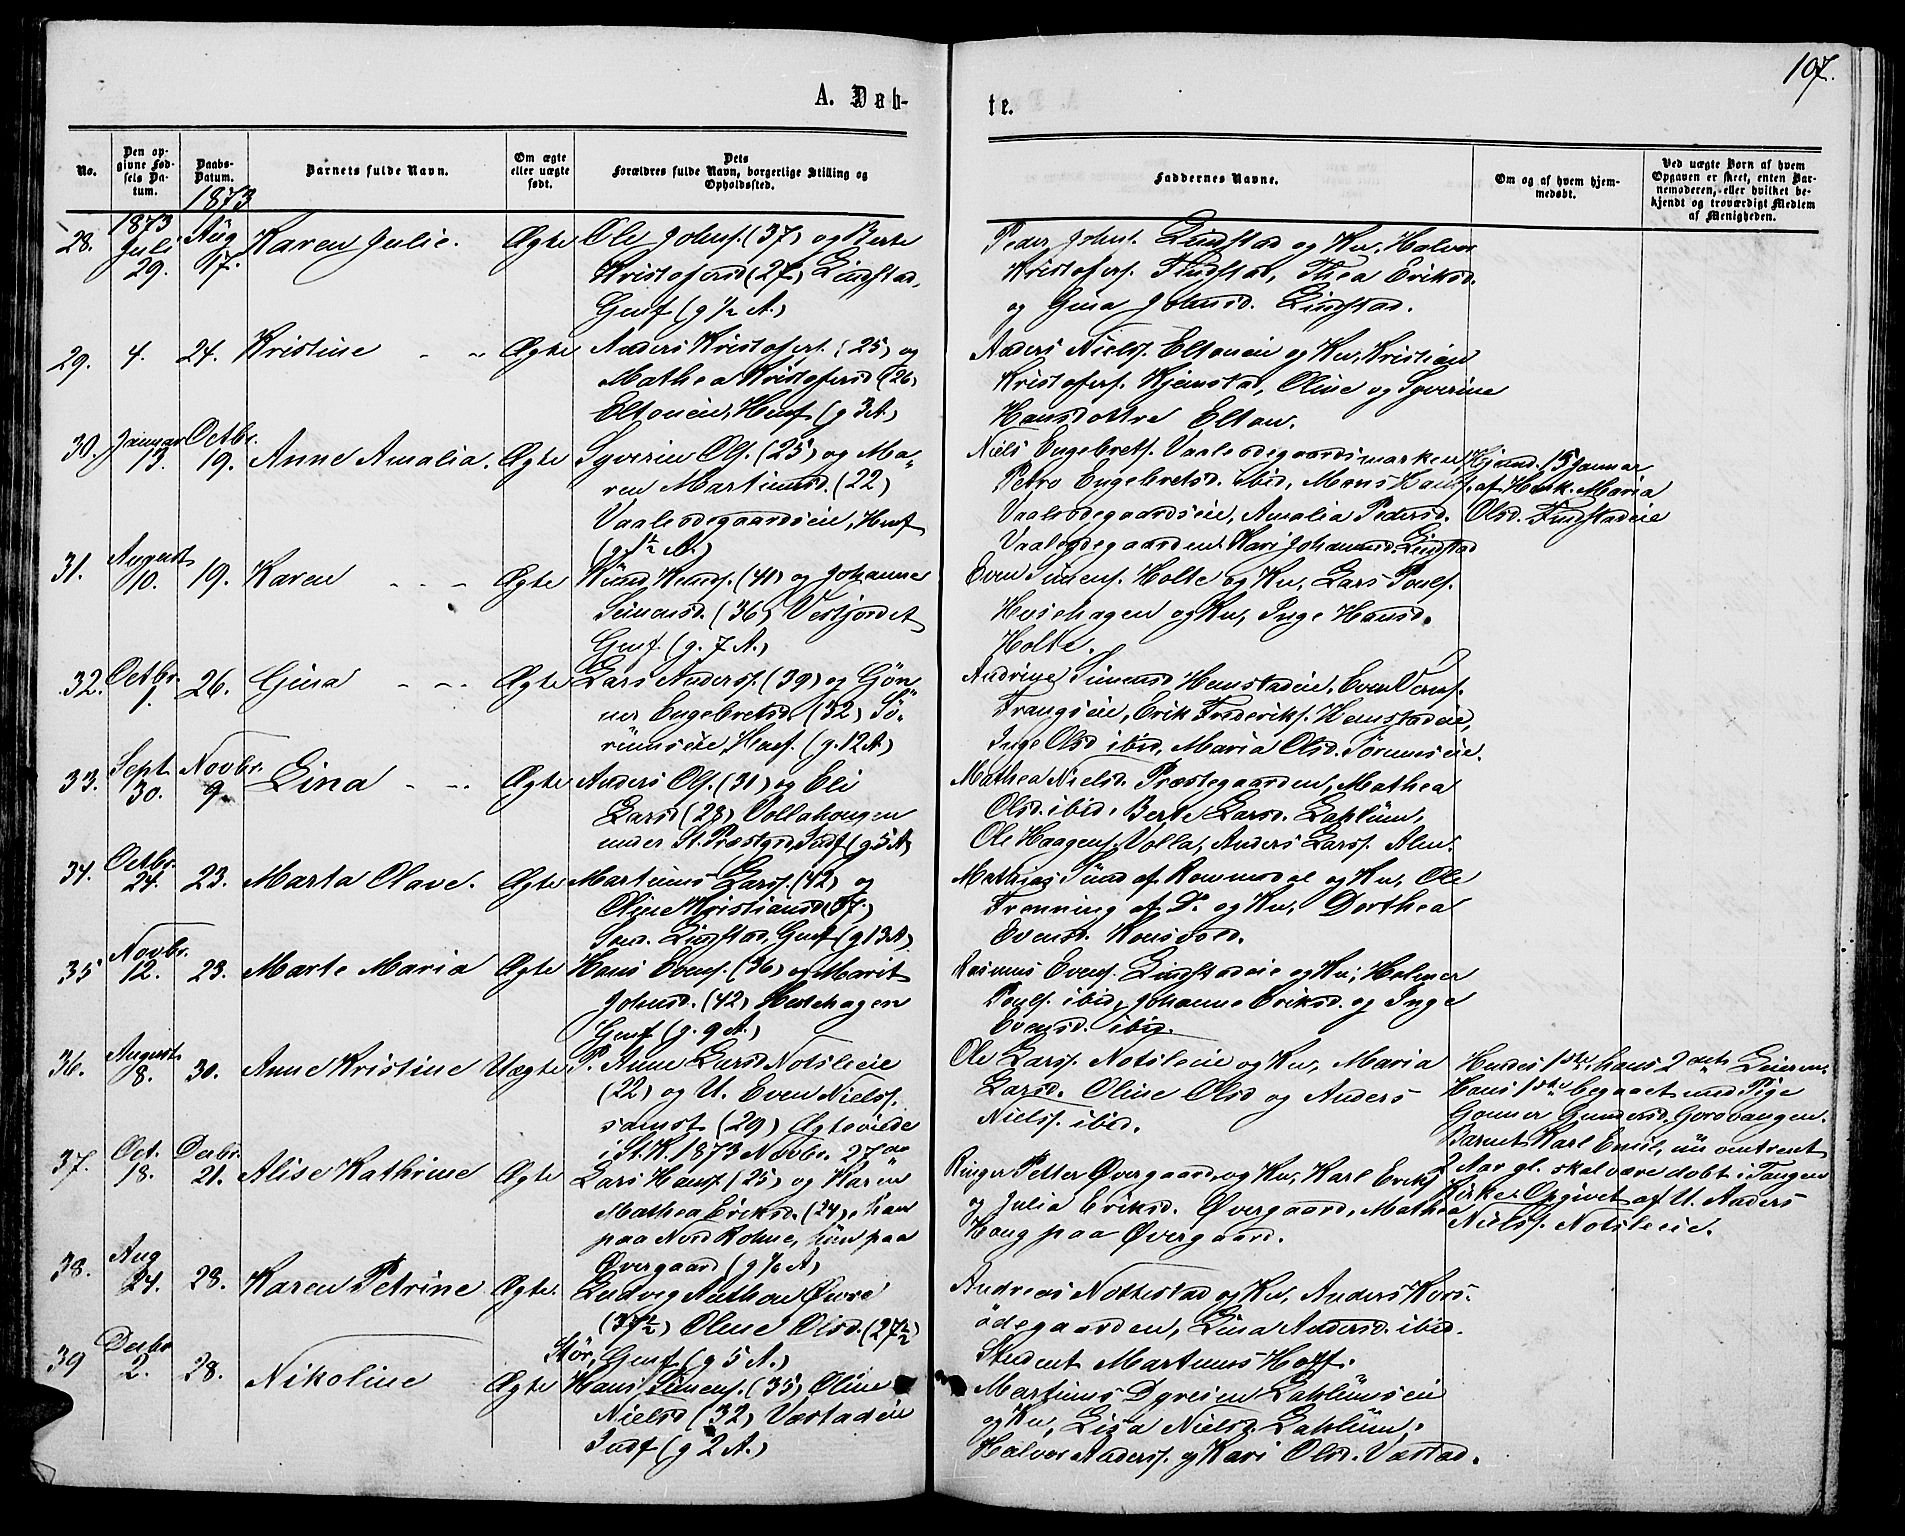 107.
A. Døb-
te.
No.
Den op-
givne Fød-
sels Da-
tum.
Daabs-
Datum.
Barnets fulde Navn.
Om ægte
eller uægte
født.
Dets
Forældres fulde Navn, borgerlige Stilling og
Opholdssted.
Faddernes Navne.
Om og af hvem hjem-
medøbt.
Ved uægte Børn af hvem
Opgaven er skeet, enten Bar-
nemoderen, eller hvilket be-
kjendt og troværdigt Medlem
af Menigheden.
1873
1873
28. Juli 29. Aug 17. Karen Julie. Ægte Ole Johnsf. (37) og Berte
Kristofersd (27) Lindstad,
Gusf (g 1/2 A.)
Peder Johns. Lindstad og Ku, Halvor
Kristofersf. Findstad, Thea Eriksd.
og Gina Johnsd. Lindstad.
29. 4. 24. Kristine - - Ægte Anders Kristofersf. (25) og
Mathea Kristofersd (26)
Eltoneie, Husf (g 3 A.)
Anders Nielsf. Eltoneie og Ku, Kristian
Kristofersf. Kjemstad, Oline og Syverine
Hansdottre Elton.
30. Januar 13. Octbr. 19. Anne Amalia. Ægte Syverin Olsf. (25) og Ma-
ren Martinusd. (22)
Vaalsødegaardseie, Husf
(g. 1 1/2 A.)
Niels Engebretsf. Vaalsødegaardsmarken,
Petro Engebretsd. ibid, Mons Hansf.
Vaalsødegaardseie, Amalia Pedersd.
Vaalsødegaarden. Kari Johannesd. Lindstad
Hjemd. 15 Januar
af Husk. Maria
Olsd. Findstadeie
31. August 10. 19. Karen - - - Ægte Knud Knudsf. (41) og Johanne
Simensd. (36) Vestjordet
Gusf. (g. 7 A.)
Even Simensf. Holte og Ku, Lars Poulsf.
Hersehagen og Ku, Inge Hansd.
Holte.
32. Octbr. 1. 26. Gina - - - Ægte Lars Andersf. (39) og Gøn-
ner Engebretsd. (32) Sø-
rumseie, Husf. (g. 12 A)
Andrine Simensd Hemstadeie, Even Vernsf.
Frangseie, Erik Frederiksf. Hemstadeie,
Inge Olsd ibid, Maria Olsd. Sørumseie.
33. Sept 30. Novbr. 9. Lina - - Ægte Anders Olsf. (31) og Eli
Larsd (28) Vollahougen
under St. Præstgrd, Indf (g 5 A)
Mathea Nielsd. Præstegaarden, Mathea
Olsd. ibid, Berte Larsd. Laklum,
Ole Haagensf. Volla, Anders Larsf. Alm.
34. Octbr. 24. 23. Marta Olave. Ægte Martinus Larsf. (42) og
Oline Kristiansd (37)
Sønd. Lindstad, Gusf (g 13 A)
Mathias Sund af Rommedal og Ku, Ole
Frenning af D. og Ku, Dorthea
Evensd. Konsvold.
35 Novbr. 12. 23. Marte Maria Ægte Hans Evensf. (36) og Marit
Johnsd. (42) Hersehagen
Gusf (g. 9 A.)
Rasmus Evensf. Lindstadeie og Ku, Helmer
Poulsf. ibid, Johanne Eriksd. og Inge
Evensd. ibid.
36. August 8. 30. Anne Kristine Uægte P. Anne Larsd Notsleeie
(22) og U. Even Nielsf.
samst (29) Ægteviede
i St. K. 1873 Novbr. 27de
Ole Larsf. Notsleeie og Ku, Maria
Larsd. Oline Olsd og Anders
Nielsf. ibid.
Hendes 1ste, hans 2det Leierm.
Hans 1ste begaaet med Pige
Gønner Gundersd. Gorobangen.
Barnet Karl Emil, nu omtrent
2 Aar gl. skal være døbt i Tangen
Kirke. Opgivet af U. Anders
Nielsf. Notsleeie.
37. Oct. 18. Decbr. 21. Alise Kathrine Ægte Lars Hansf (25) og Karen
Mathea Eriksd. (24), han
paa Nord Kohne, hun paa
Øvergaard (g 1/6 A)
Ringer Petter Øvergaard og Ku, Karl Eriksf
og Julia Eriksd. Øvergaard, Mathea
Houg paa Øvergaard.
38. Aug 24. 28. Karen Petrine Ægte. Ludvig Anthon Øvre
(37 1/2) Oline Olsd. (27 1/2)
Stør, Gusf (g 5 A.)
Andreas Nottestad og Ku, Anders Kors-
ødegaarden, Lina Andersd. ibid.
Student Martinus Hoff.
39 Decbr 2. 28. Nikoline Ægte Hans Simensf. (35) Oline
Nielsd (32) Væstadeie
Indf (g 2 A.)
Martinus Dyresen Laklumseie
og Ku, Lisa Nielsd. Laklum,
Halvor Andersf. og Kari Olsd. Væstad.